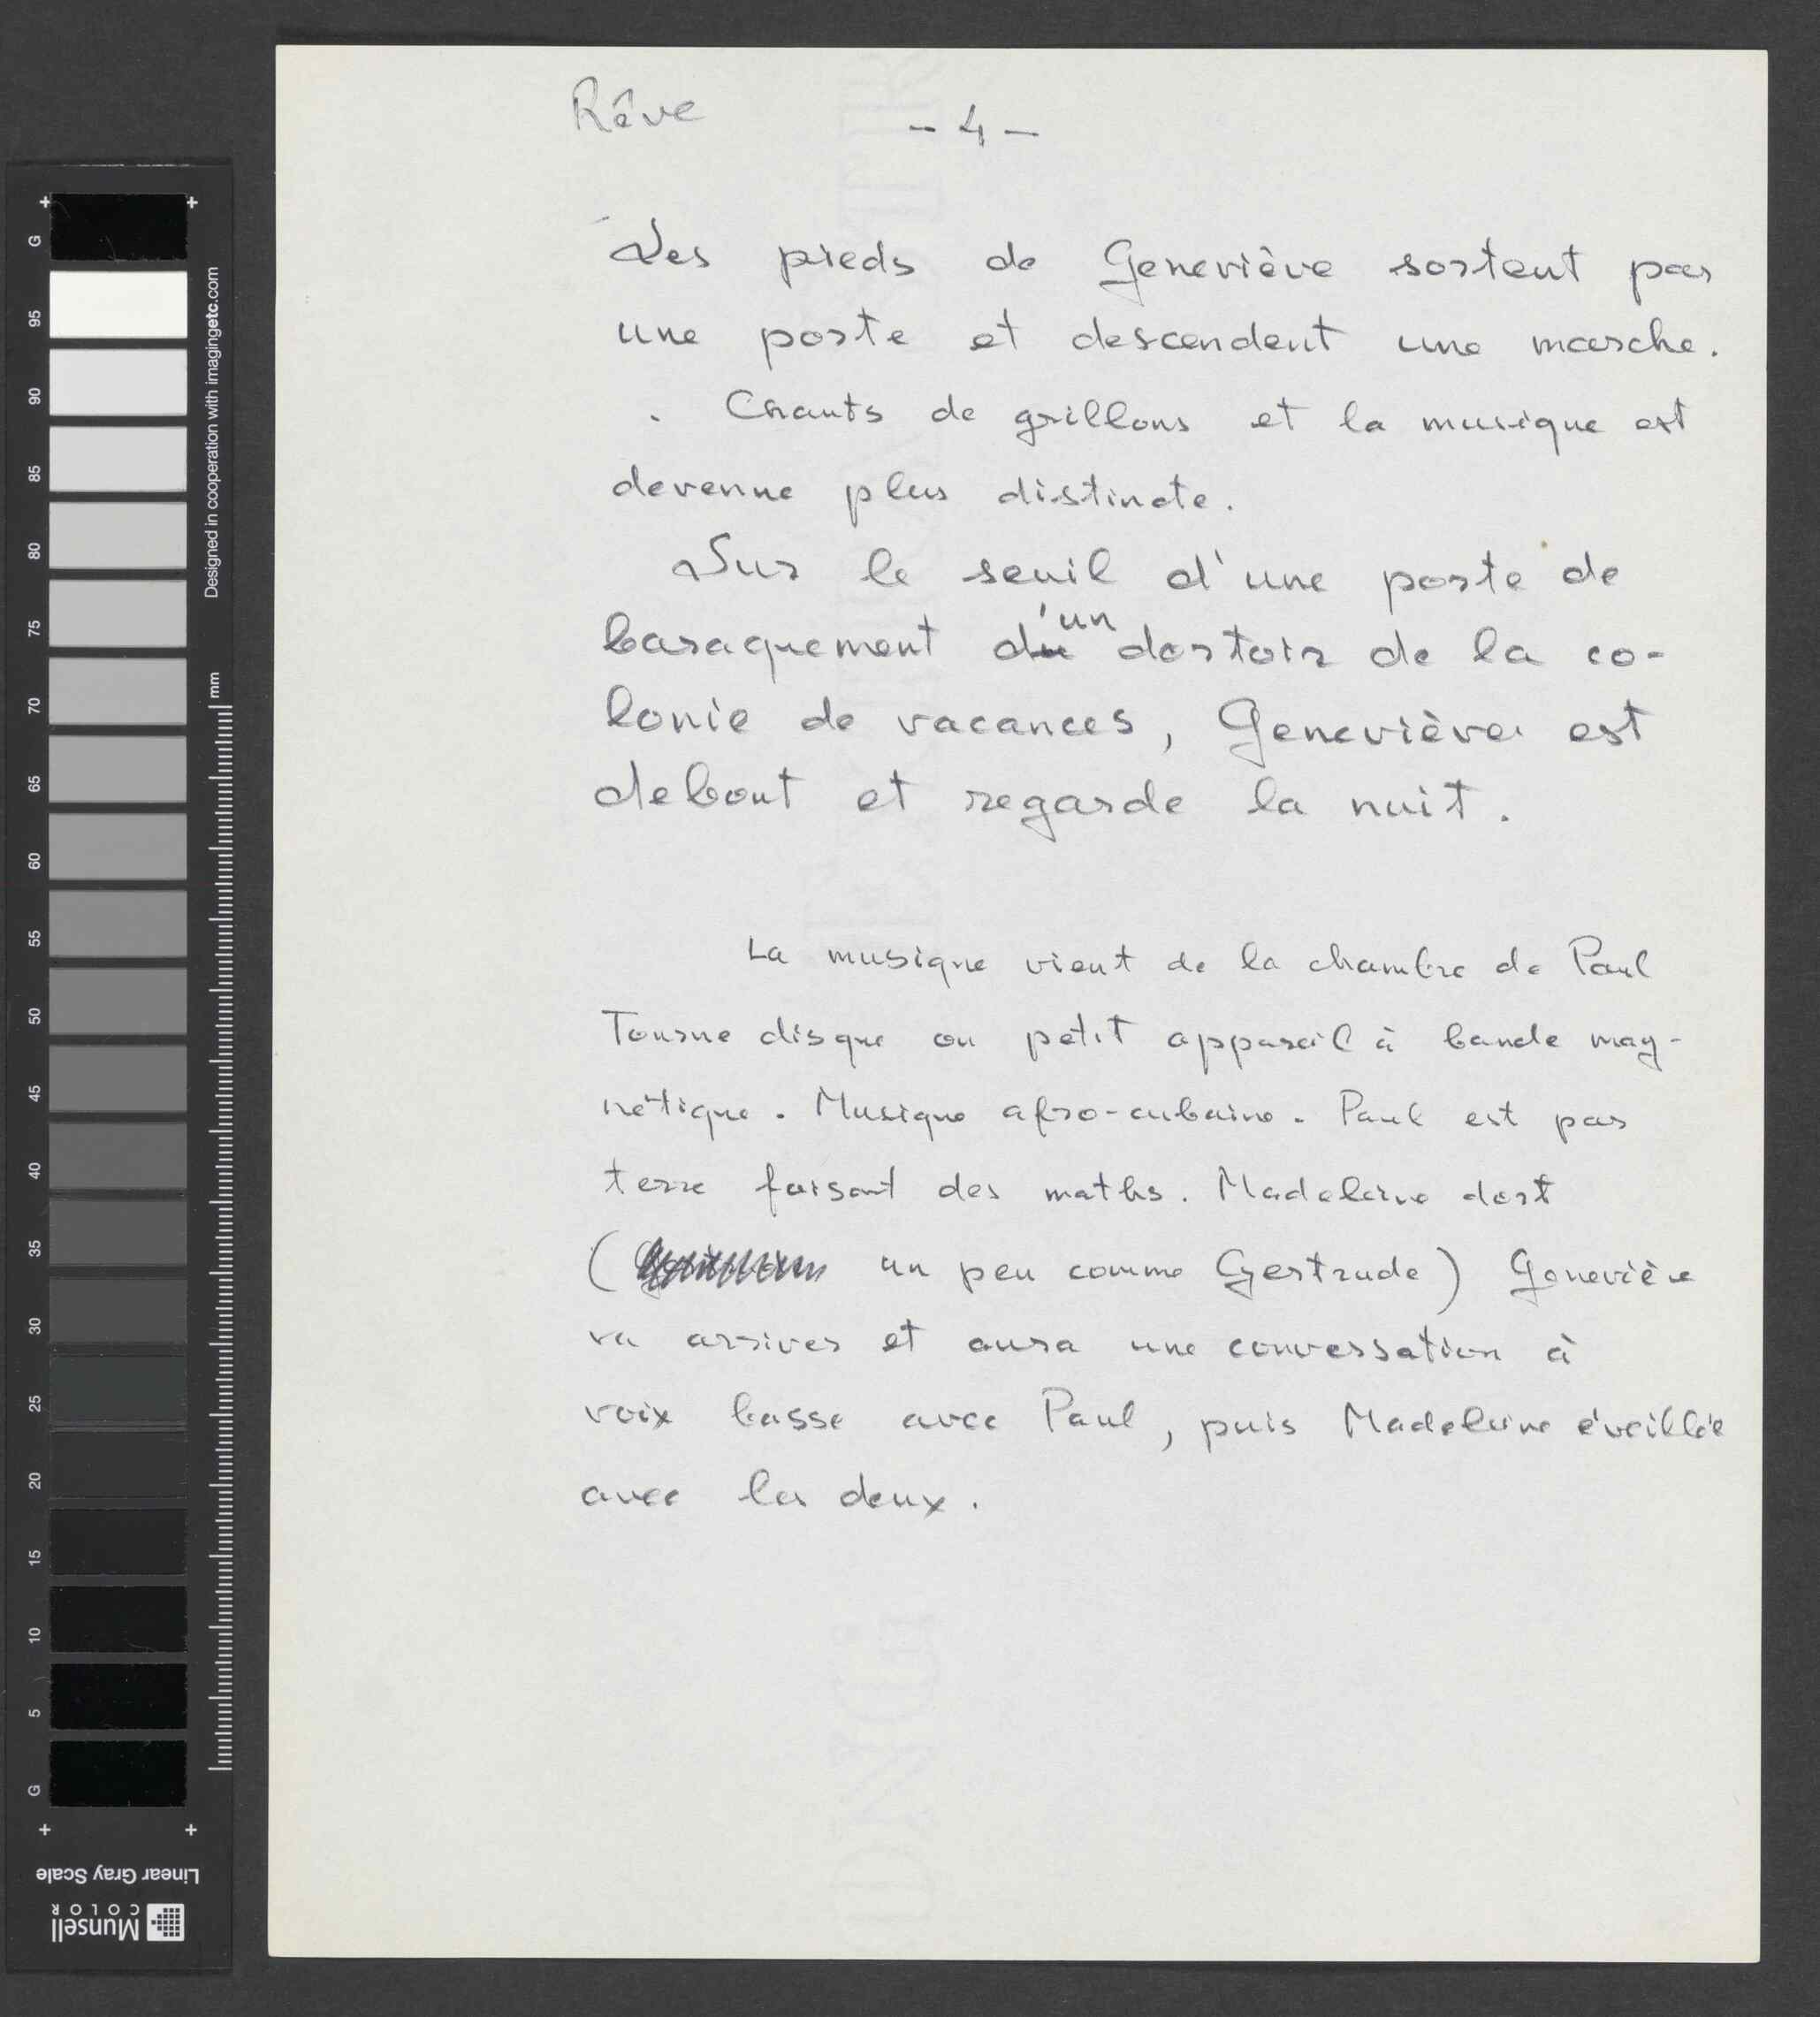 Rêve
- 4 -
Les pieds de Geneviève sortent par
une porte et descendent une marche.
. Chants de grillons et la musique est
devenue plus distincte.
Sur le seuil d'une porte de
baraquement d'un dortoir de la co-
lonie de vacances, Geneviève est
debout et regarde la nuit.
La musique vient de la chambre de Paul
Tourne disque ou petit appareil à bande mag-
nétique. Musique afro-cubaine. Paul est par
terre faisant des maths. Madeleine dort
( un peu comme Gertrude) Geneviève
va arriver et aura une conversation à
voix basse avec Paul, puis Madeleine éveillée
avec les deux.
G
95
90
85
80
75
70
65
60
55
50
45
40
35
30
25
20
15
10
5
G
mm
Designed in cooperation with imagingetc.com
Linear Gray Scale
Munsell
COLOR